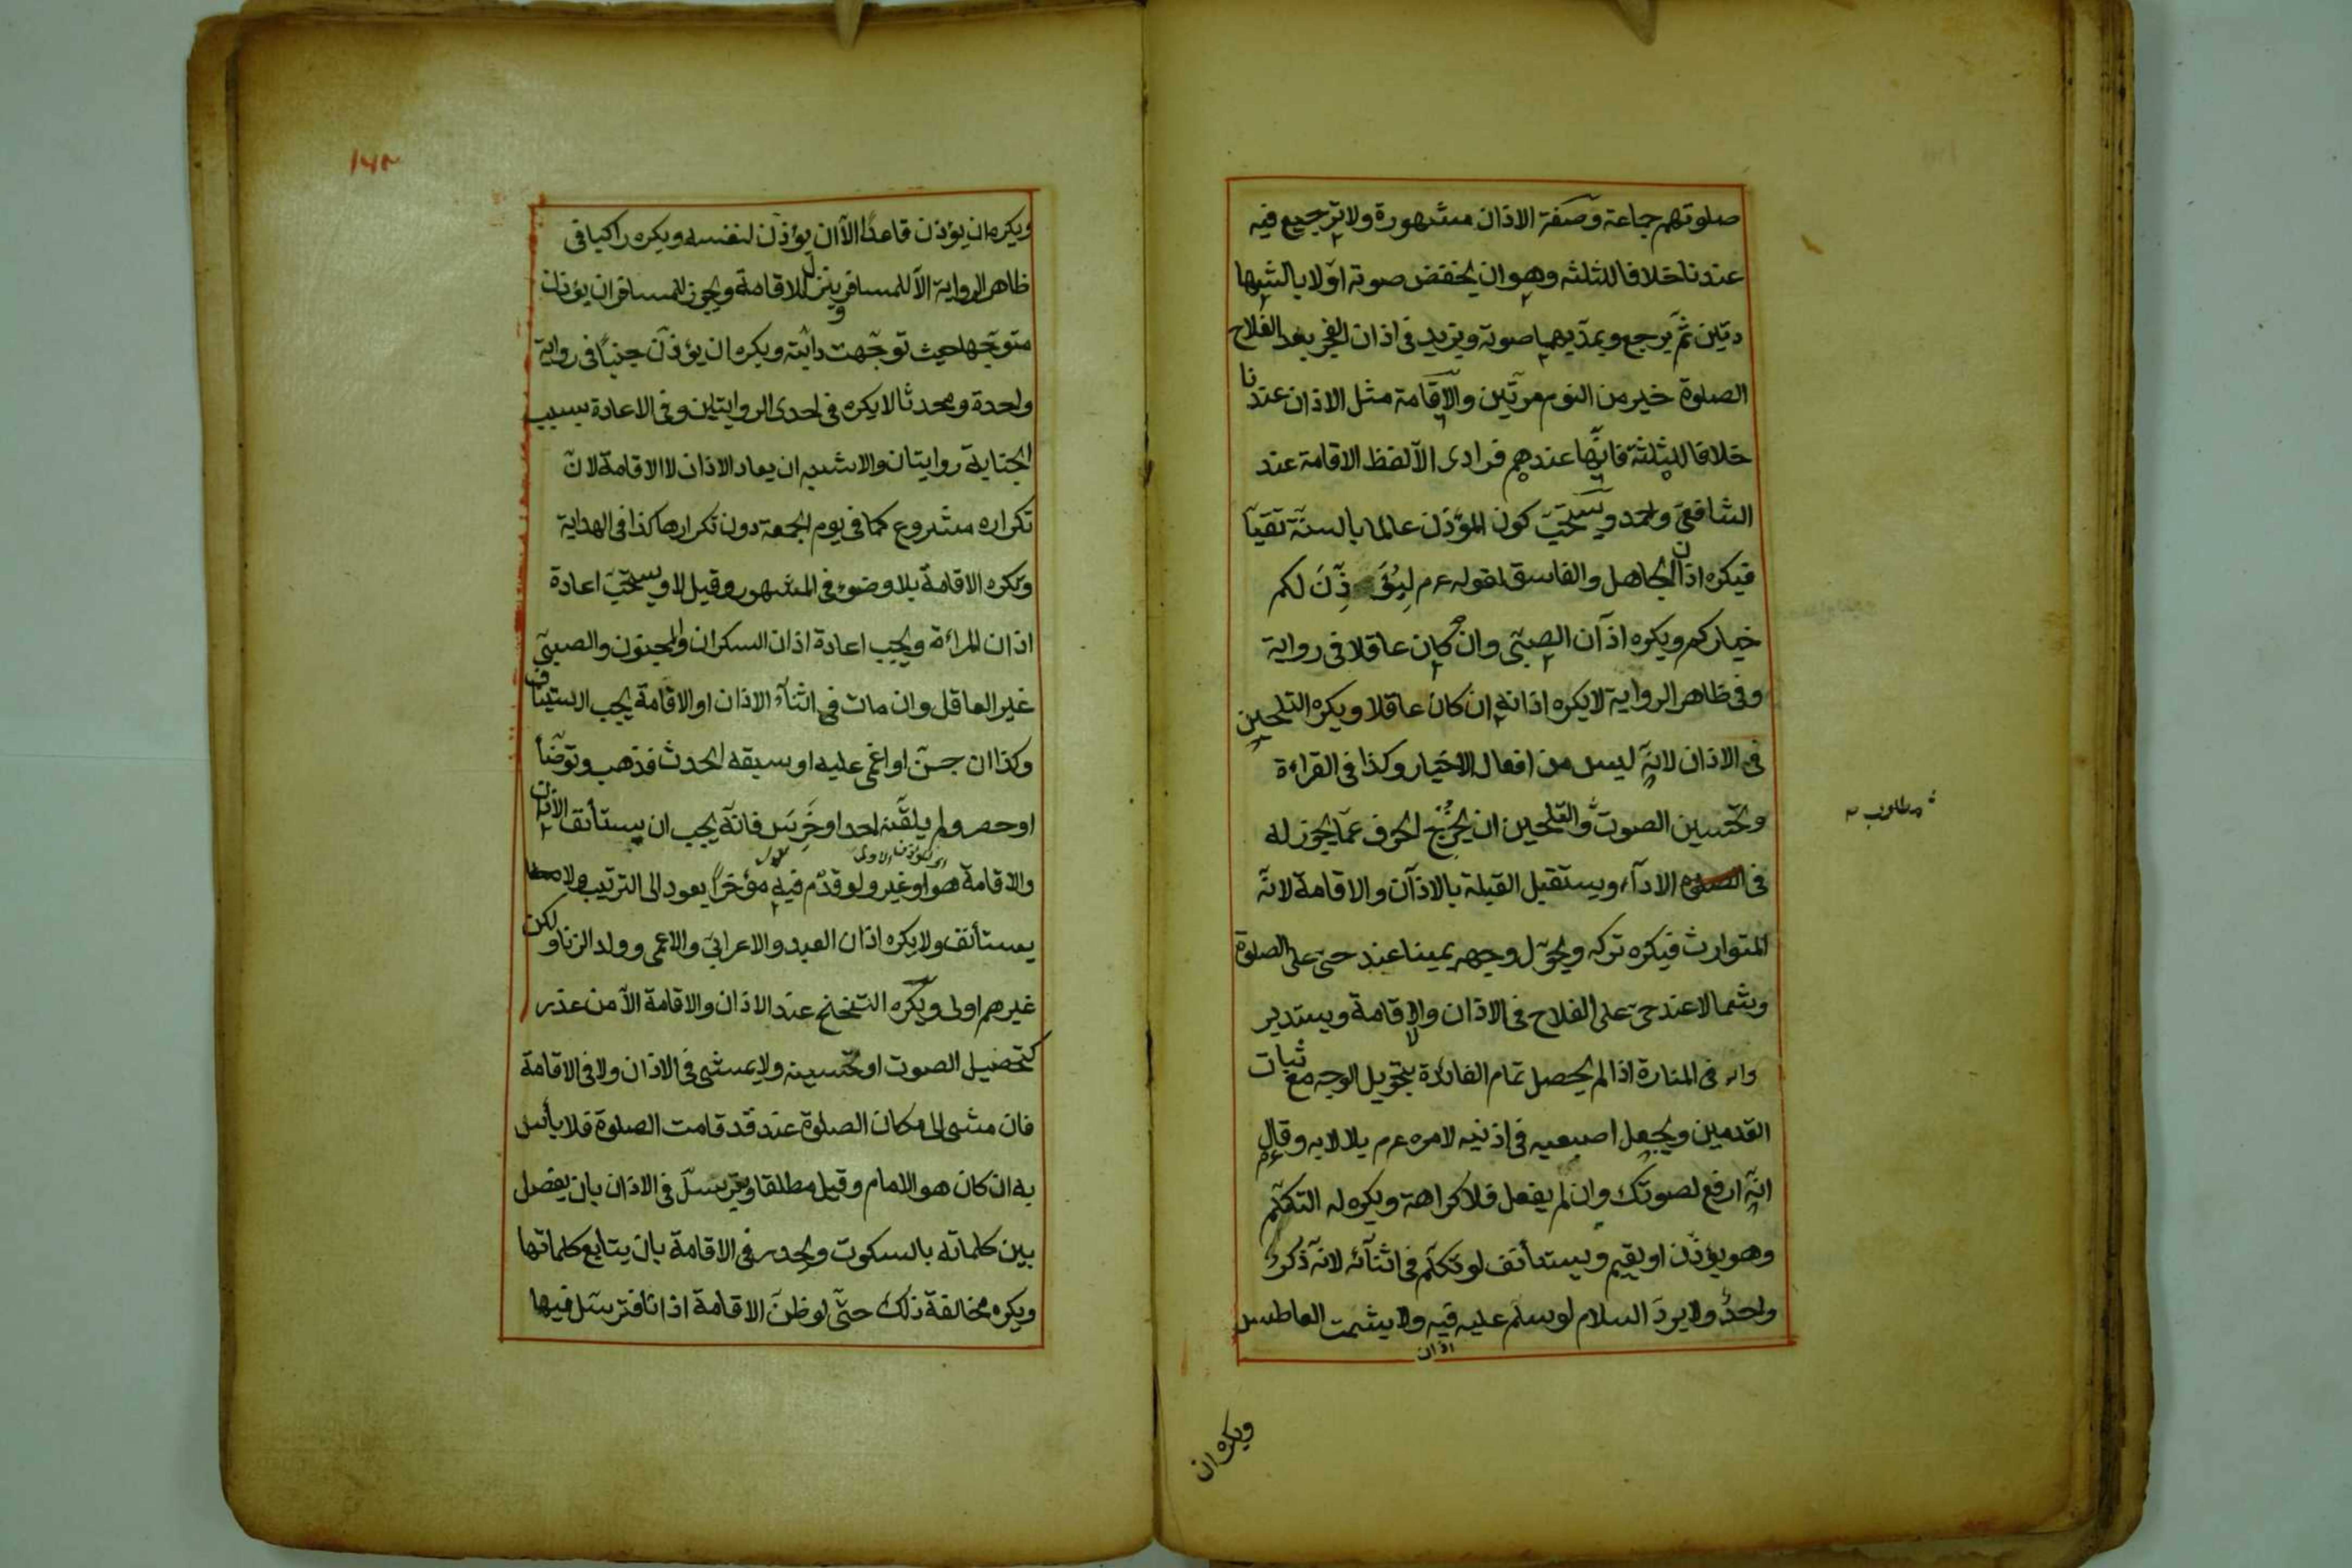 صلوتهم جماعة وصفة الاذان مشهورة ولا ترجيع فيه
عندنا خلافا للثلثه وهو ان يخفض صوته اولا بالشها
دتين ثم يرجع ويمد بهما صوته ويزيد فى اذان الفجر بعد الفلاح
الصلوة خير من النوم مرتين والاقامة مثل الاذان عندنا
خلافا للثلثة فانها عندهم فرادى الا لفظ الاقامة عند
الشافعى واحمد ويستحب كون المؤذن عالما بالسنة تقيا
فيكره اذان الجاهل والفاسق لقوله عم ليؤذن لكم
خياركم ويكره اذان الصبى وان كان عاقلا فى رواية
وفى ظاهر الرواية لا يكره اذانه ان كان عاقلا ويكره التلحين
فى الاذان لانه ليس من افعال الاخيار وكذا فى القراءة
وتحسين الصوت والتلحين ان يخرج الحرف عما يجوز له
فى الاداء ويستقبل القبلة بالاذان والاقامة لانه
المتوارث فيكره تركه ويحول وجهه يمينا عند حى على الصلوة
وشمالا عند حى على الفلاح فى الاذان والاقامة ويستدير
فى المنارة اذا لم يحصل تمام الفائدة بتحويل الوجه مع ثبات
القدمين ويجعل اصبعيه فى اذنيه لامره عم بلالا به وقال عم
انه ارفع لصوتك وان لم يفعل فلا كراهة ويكره له التكلم
وهو يؤذن او يقيم ويستأنف لو تكلم فى اثنائه لانه ذكر
واحد ولا يرد السلام لو سلم عليه فيه ولا يشمت العاطس
اذان
ويكره ان
مطلوب
۱۶۳
ويكره ان يؤذن قاعدا الا ان يؤذن لنفسه ويكره راكبا فى
ظاهر الرواية الا للمسافر وينزل للاقامة ويجوز للمسافر ان يؤذن
متوجها حيث توجهت دابته ويكره ان يؤذن جنبا فى رواية
واحدة ومحدثا لا يكره فى احدى الروايتين وفى الاعادة بسبب
الجنابة روايتان والاشبه ان يعاد الاذان لا الاقامة لان
تكراره مشروع كما فى يوم الجمعة دون تكرارها كذا فى الهداية
ويكره الاقامة بلا وضوء فى المشهور وقيل لا ويستحب اعادة
اذان المراءة ويجب اعادة اذان السكران والمجنون والصبى
غير العاقل وان مات فى اثناء الاذان او الاقامة يجب الاستيناف
وكذا ان جن او اغمى عليه او سبقه الحدث فذهب وتوضأ
او حصر ولم يلقنه احد او خرس فانه يجب ان يستأنف الاذان
والاقامة هو او غير ولو قدم فيه مؤخرا يعود الى الترتيب ولا
يستأنف ولا يكره اذان العبد والاعرابى والاعمى وولد الزنا ولكن
غيرهم اولى ويكره التنحنح عند الاذان والاقامة الا من عذر
كتحصيل الصوت او تحسينه ولا يمشى فى الاذان ولا فى الاقامة
فان مشى الى مكان الصلوة عند قد قامت الصلوة فلا بأس
به ان كان هو الامام وقيل مطلقا ويترسل فى الاذان بان يفصل
بين كلماته بالسكوت ويحدر فى الاقامة بان يتابع كلماتها
ويكره مخالفة ذلك حتى لو ظن الاقامة اذانا فترسل فيها